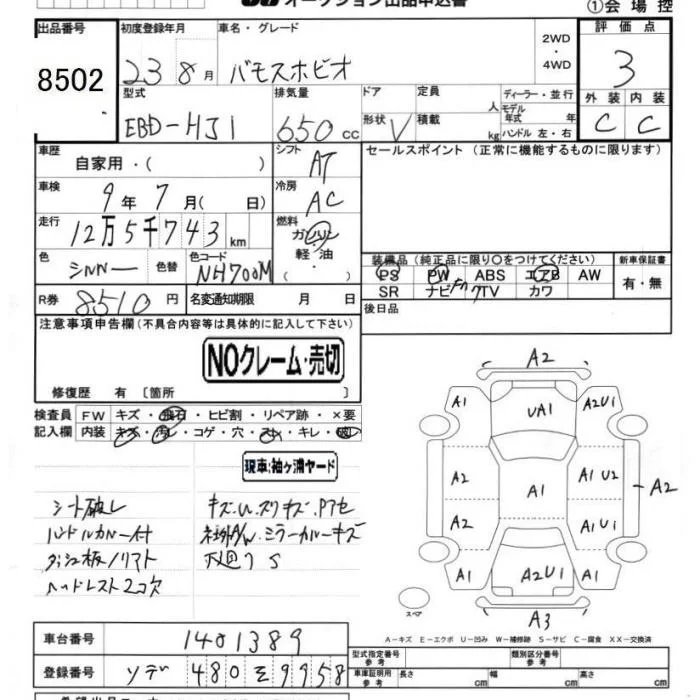 オークション出品申込書
①会場控
出品番号 初度登録年月 車名・グレード 2WD・4WD 評価点
8502 23 8月 バモスホビオ 3
型式 排気量 ドア 定員 人 ディーラー・並行 外装 内装
EBD-HJ1 650cc 形状 V 積載 kg モデル年式 年 ハンドル 左・右 C C
車歴 自家用・( ) シフト AT セールスポイント (正常に機能するものに限ります)
車検 9年7月( 日) 冷房 AC
走行 12万5千743km 燃料 ガソリン 軽油・( )
色 シルバー 色替 色コード NH700M
装備品 (純正品に限り○をつけてください) 新車保証書
PS PW ABS エアB AW 有・無
SR ナビ TV カワ
R券 8510円 名変通知期限 月 日
後日品
注意事項申告欄 (不具合内容等は具体的に記入して下さい)
NOクレーム・売切
修復歴 有 〔箇所 〕
検査員記入欄 FW キズ・飛石・ヒビ割・リペア跡・×要
内装 キズ・汚レ・コゲ・穴・スレ・キレ・破レ
現車:袖ヶ浦ヤード
シート破レ
ハンドルカバー付
ヘッドレスト2コ欠
ミラーカバーキズ
下廻りS
A2
A1 UA1 A2U1
A2 A1 A1U2 A2
A2 A1U1
A1 A2U1 A1
スペア A3
A-キズ E-エクボ U-凹み W-補修跡 S-サビ C-腐食 XX-交換済
車台番号 1401389
登録番号 ソデ 480 を 9958
型式指定番号 参考 類別区分番号 参考
車庫証明用 参考 長さ cm 幅 cm 高さ cm